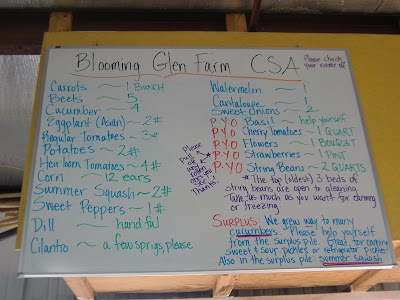 Blooming Glen Farm CSA
Please check
your name off
Carrots ~ 1 BUNCH
Beets ~ 5
Cucumber ~ 4
Eggplant (Asian) ~ 2#
Regular Tomatoes ~ 3#
Potatoes ~ 2#
Heirloom Tomatoes ~ 4#
Corn ~ 12 ears
Summer Squash ~ 2#
Sweet Peppers ~ 1#
Dill ~ hand ful
Cilantro ~ a few sprigs, please
Watermelon ~ 1
Cantaloupe ~ 1
Sweet Onions ~ 2
P-Y-O Basil ~ help yourself
P-Y-O Cherry tomatoes ~ 1 QUART
P-Y-O Flowers ~ 1 BOUQUET
P-Y-O Strawberries ~ 1 PINT
P-Y-O String Beans ~ 2 QUARTS
Please
Thanks!
* The top (oldest) 3 beds of
string beans are open to gleaning
Take as much as you want for canning
or freezing.
SURPLUS: We grew way to many
cucumbers. Please help yourself
from the surplus pile. Great for canning
sweet & sour pickles or refrigerator pickles!
Also in the surplus pile: summer squash